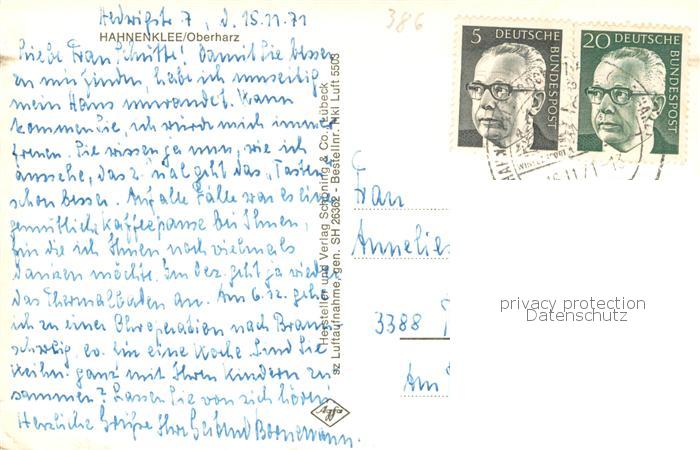 Hedwigstr 7, d. 15.11.71
HAHNENKLEE/Oberharz
Liebe Frau Schütte! Damit Sie besser
zu mir finden, habe ich umseitig
mein Haus umrandet. Wann
kommen Sie, ich würde mich immer
freuen. Sie wissen ja nun, wie ich
aussehe, das 2. mal geht das "Tasten"
schon besser. Auf alle Fälle war es eine
gemütliche Kaffeepause bei Ihnen,
für die ich Ihnen noch vielmals
danken möchte. Im Dez. geht ja wieder
das Thermalbaden an. Am 6.12. gehe
ich zu einer Ohroperation nach Braun-
schweig, ca. für eine Woche. Sind Sie
Weihn. ganz mit Ihren Kindern zu-
sammen? Lassen Sie von sich hören!
Herzliche Grüße Ihre Bornemann.
386
Hersteller und Verlag Schöning & Co., Lübeck
sz Luftaufnahme, gen. SH 26362 - Bestellnr. Hkl Luft 5503
Agfa
5 DEUTSCHE BUNDESPOST
20 DEUTSCHE BUNDESPOST
16.11.71-13
Frau
Annelies
3388
Am
privacy protection
Datenschutz